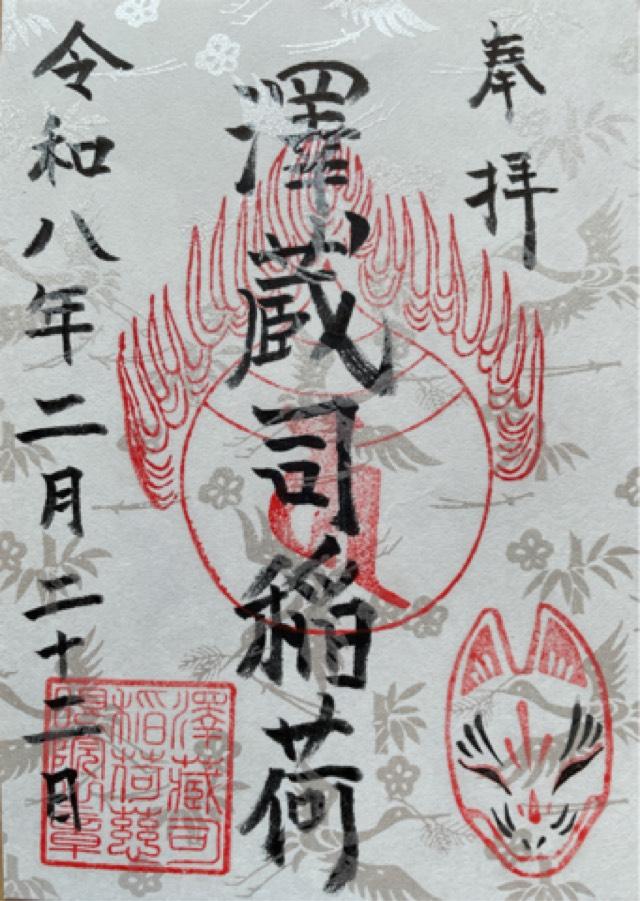 奉拝
澤蔵司稲荷
令和八年二月二十二日
澤蔵司
稲荷慈
眼院之章